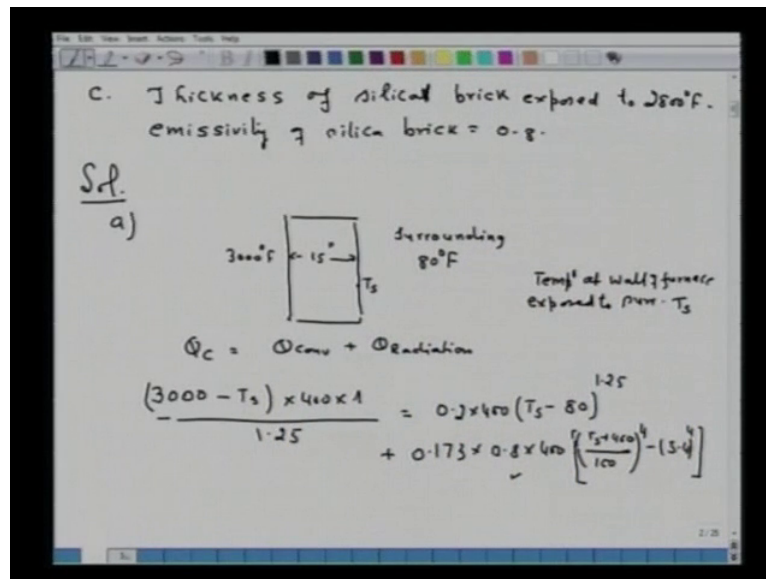 File Edit View Insert Actions Tools Help
C. Thickness of silicat brick exposed to 2800°F.
emissivity of silica brick = 0.8.
Sol.
a)
Surrounding
3000°F ← 15" → 80°F
Ts
Temp^r at wall of furnace
exposed to surr. Ts
Qc = Qconv + QRadiation
(3000 - Ts) × 400 × 1 / 1.25 = 0.3 × 400 (Ts - 80)^1.25
+ 0.173 × 0.8 × 400 [((Ts+460)/100)^4 - (5.4)^4]
2/25